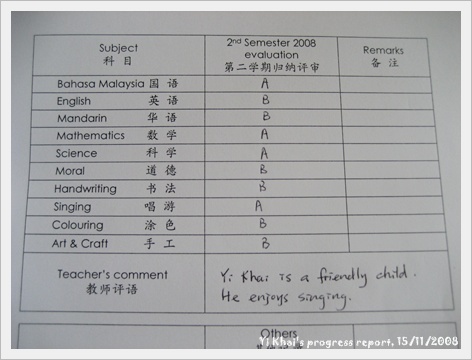 Subject 2nd Semester 2008 Remarks
科 目 evaluation 备 注
第二学期归纳评审
Bahasa Malaysia 国 语 A
English 英 语 B
Mandarin 华 语 B
Mathematics 数 学 A
Science 科 学 A
Moral 道 德 B
Handwriting 书 法 B
Singing 唱 游 A
Colouring 涂 色 B
Art & Craft 手 工 B
Teacher's comment Yi Khai is a friendly child.
教师评语 He enjoys singing.
Others
Yi Khai's progress report, 15/11/2008